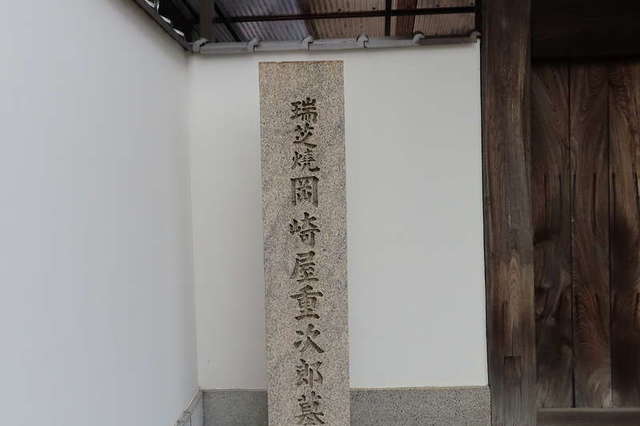 瑞芝焼岡崎屋重次郎墓